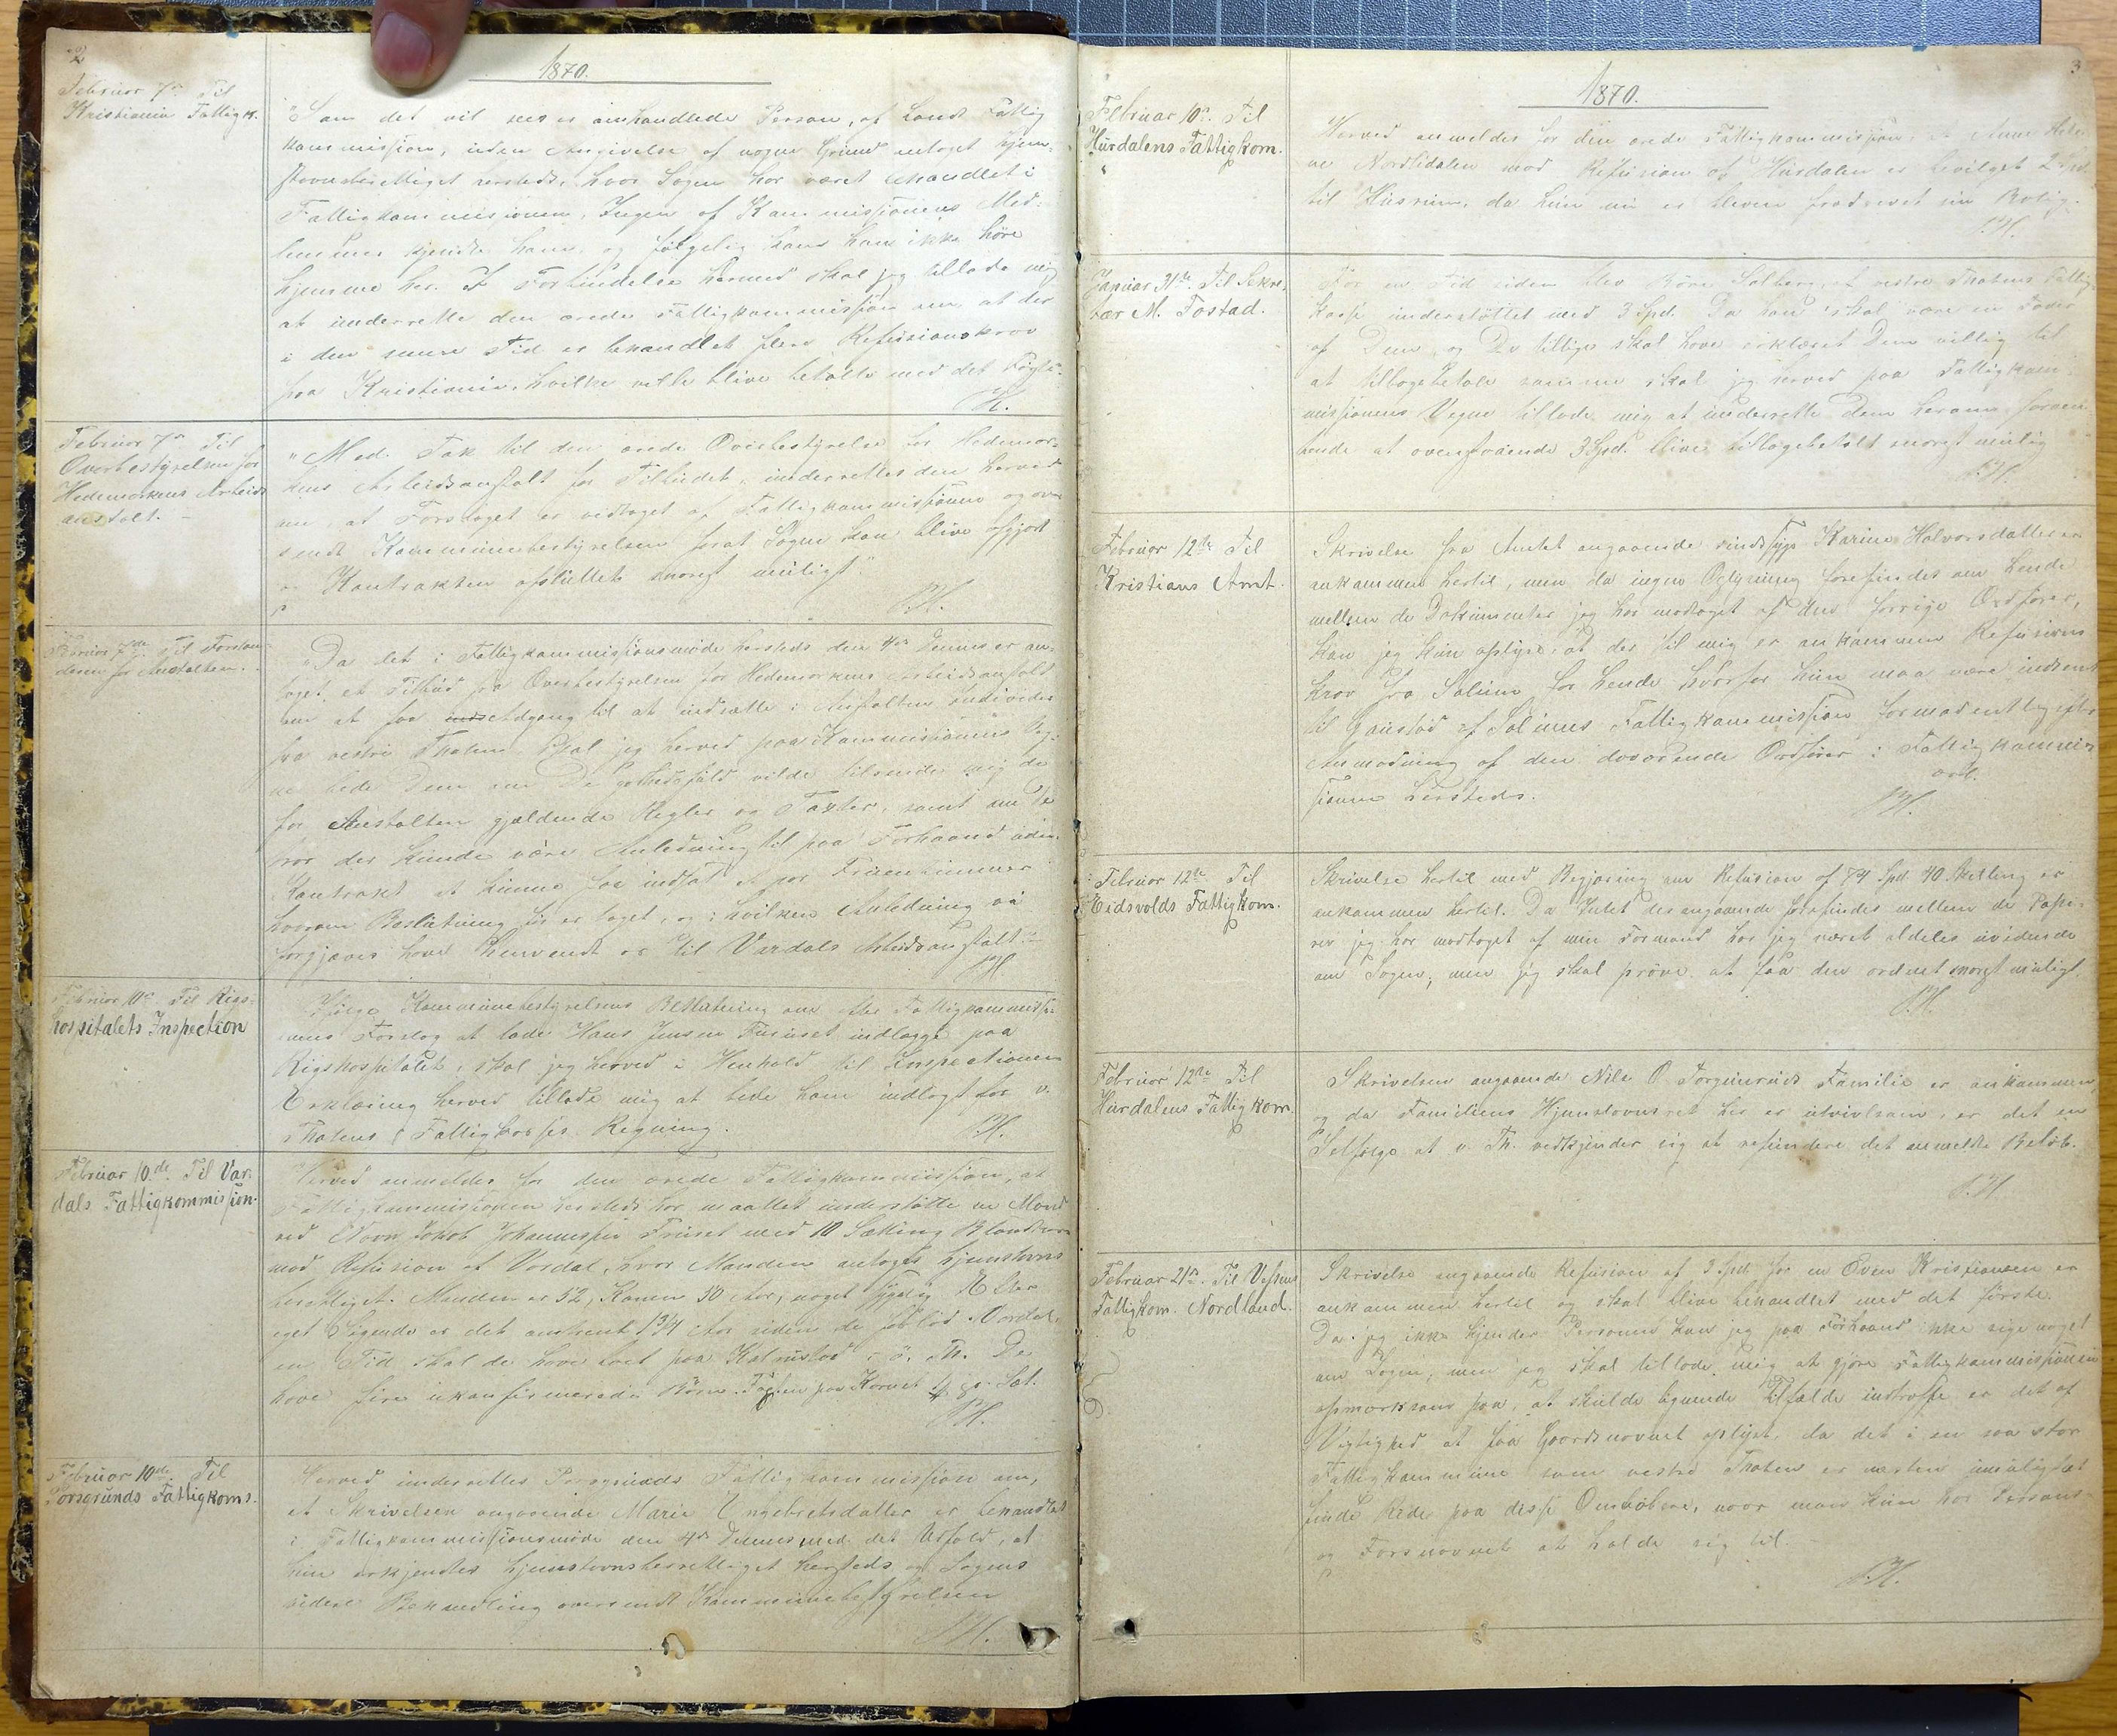 2
1870.
Februar 7de Til
Kristiania Fattigk.
"Som det vil sees er omhandlede Person, af Lands Fattig
kommission, uden Angivelse af nogen Grund antaget hjem-
stavnsberettiget hersteds, hvor Sagen har været behandlet i
Fattigkommissionen. Ingen af Kommissionens Med-
lemmer kjendte ham, og følgelig kan han ikke høre
hjemme her. I Forbindelse hermed skal jeg tillade mig
at underrette den ærede Fattigkommission om at der
i den senere Tid er behandlet flere Refusionskrav
fra Kristiania, hvilke ville blive betalte med det
P.H.
Februar 7de Til
Overbestyrelsen for
Hedemarkens Arbeids
anstalt.
"Med Tak til den ærede Overbestyrelse for Hedemar-
kens Arbeidsanstalt for Tilbudet, underrettes den herved
om, at Forslaget er vedtaget af Fattigkommissionen og over
sendt Kommunebestyrelsen forat Sagen kan blive afgjort
og Kontrakten afsluttet snarest muligt."
P.H.
Februar 7de Til Forstan
deren for Anstalten.
"Da det i Fattigkommissionsmøde hersteds den 4de Dennes er an-
taget et Tilbud fra Overbestyrelsen for Hedemarkens Arbeidsanstalt
om at faa Adgang til at indsætte i Anstalten Individer
fra vestre Thoten, skal jeg herved paa Kommissionens Veg-
ne bede Dem om De godhedsfuld vilde tilsende mig de
for Anstalten gjældende Regler og Taxter, samt om De
tror der kunde være Anledning til paa Forhaand uden
Kontrakt at kunne faa indsat et par Fruentimmer
hvorom Beslutning her er taget, og i hvilken Anledning vi
forgjæves have henvendt os til Vardals Arbeidsanstalt."
P.H.
Februar 10de Til Rigs-
hospitalets Inspection
Ifølge Kommunebestyrelsens Beslutning om efter Fattigkommissio-
nens Forslag at lade Hans Jensen Furuset indlægge paa
Rigshospitalet, skal jeg herved i Henhold til Inspectionens
Erklæring herved tillade mig at bede ham indlagt for v.
Thotens Fattigkasses Regning.
P.H.
Februar 10de Til Var
dals Fattigkommission.
Herved anmeldes for den ærede Fattigkommission, at
Fattigkommissionen hersteds har maattet understøtte en Mand
ved Navn Jakob Johannessen med 10 Sætting Blandkorn
mod Refusion af Vardal, hvor Manden antages hjemstavns
berettiget. Manden er 52, Konen 50 Aar, noget sygelig. Efter
eget Sigende er det omtrent 1 3/4 Aar siden de forlod Vardal,
en Tid skal de have boet paa i ö. Th. De
have fire ukonfirmerede Børn. Taxten paa Kornet
P.H.
Februar 10de Til
Porsgrunds Fattigkoms.
Herved underrettes Porsgrunds Fattigkommission om,
at Skrivelsen angaaende Marie Engebretsdatter er behandlet
i Fattigkommissionsmøde den 4de Dennes med det Udfald, at
hun erkjendtes hjemstavnsberettiget hersteds og Sagens
videre Behandling oversendt Kommunebestyrelsen
P.H.
3
1870.
Februar 10de Til
Hurdalens Fattigkom.
Herved anmeldes for den ærede Fattigkommission, at Anne
Nordlidalen mod Refusion af Hurdalen er bevilget 2 Spd.
til Husrum, da hun nu er bleven fradrevet sin Bolig.
P.H.
Januar 31te Til Sekre-
tær M. Fostad.
For en Tid siden blev Solberg af vestre Thotens Fattig
kasse understøttet med 3 Spd. Da han skal være en Fader
af Dem, og De tillige skal have erklæret Dem villig til
at tilbagebetale samme skal jeg herved paa Fattigkom-
missionens Vegne tillade mig at underrette Dem herom, forven
tende at ovenstaaende 3 Spd. bliver tilbagebetalt snarest mulig
P.H.
Februar 12te Til
Kristians Amt.
Skrivelse fra Amtet angaaende sindssyge Karine Halvorsdatter er
ankommen hertil, men da ingen Oplysning forefindes om hende
mellem de Dokumenter jeg har modtaget af den forrige Ordfører,
kan jeg kun oplyse, at der til mig er ankommen Refusions
krav fra Solum for hende hvorfor hun maa være indsendt
til Gaustad af Solums Fattigkommission formodentlig efter
Anmodning af den daværende Ordfører i Fattigkommis-
sionen hersteds.
ærb.
P.H.
Februar 12te Til
Eidsvolds Fattigkom.
Skrivelse hertil med Begjæring om Refusion af 84 Spd 40 Skilling er
ankommen hertil. Da Intet desangaaende forefindes mellem de Papi-
rer jeg har modtaget af min Formand har jeg været aldeles uvidende
om Sagen, men jeg skal prøve at faa den ordnet snarest muligt.
P.H.
Februar 12te Til
Hurdalens Fattigkom.
Skrivelsen angaaende Nils O. Torgunruds Familie er ankommen,
og da Familiens Hjemstavnsret her er utvivlsom, er det en
Selfølge at v. Th. vedkjender sig at refundere det anmeldte Beløb.
P.H.
Februar 21de Til Vefsens
Fattigkom. Nordland.
Skrivelse angaaende Refusion af 3 Spd for en Even Kristiansen er
ankommen hertil og skal blive behandlet med det første.
Da jeg ikke kjender Personen kan jeg paa Forhaand ikke sige noget
om Sagen, men jeg skal tillade mig at gjøre Fattigkommissionen
opmærksom paa, at skulde lignende Tilfælde indtræffe er det af
Vigtighed at faa Gaardsnavnet oplyst, da det i en saa stor
Fattigkommune som vestre Thoten er næsten umuligt at
finde Rede paa disse Omløbere, naar man kun har Person-
og Farsnavnet at holde sig til.
P.H.